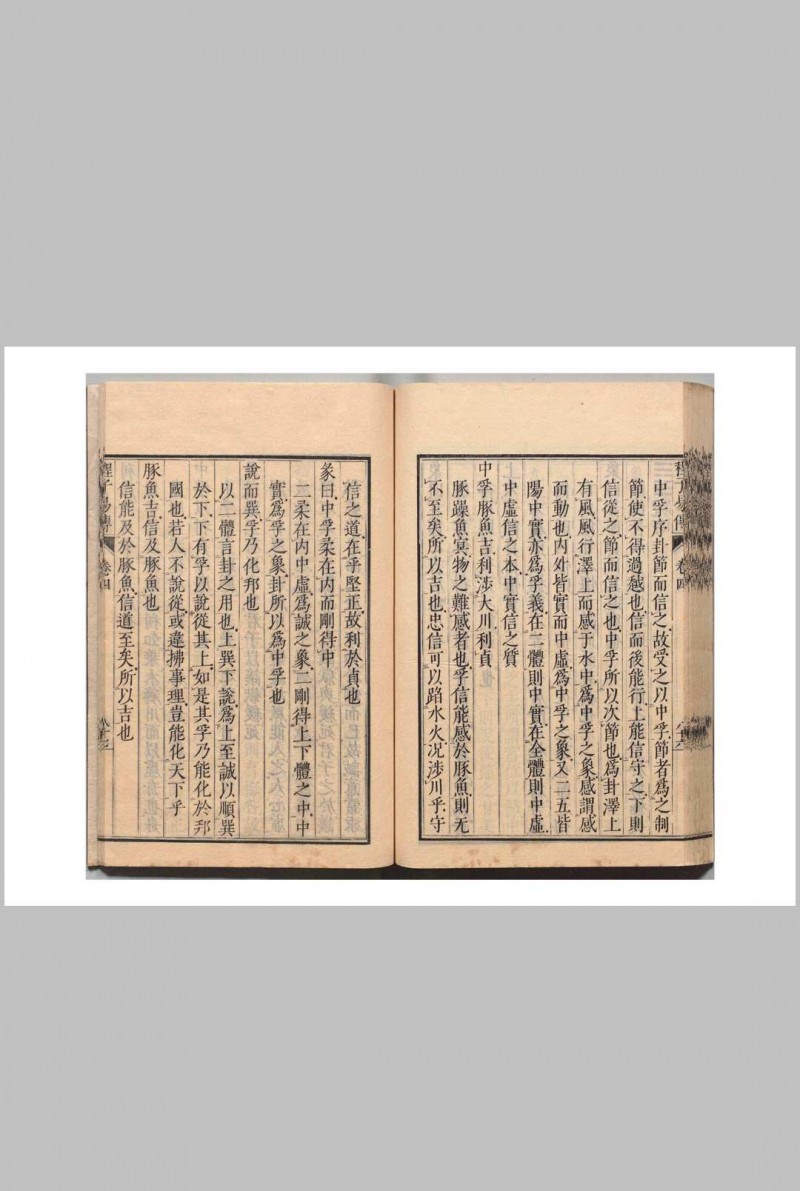 中孚序卦節而信之故受之以中孚節者爲之制
節使不得過越也信而後能行上能信守之下則
信從之節而信之也中孚所以次節也爲卦澤上
有風風行澤上而感于水中爲中孚之象感謂感
而動也内外皆實而中虛爲中孚之象又二五皆
陽中實亦爲孚義在二體則中實在全體則中虛
中虛信之本中實信之質
中孚豚魚吉利涉大川利貞
豚躁魚冥物之難感者也孚信能感於豚魚則无
不至矣所以吉也忠信可以蹈水火况涉川乎守
信之道在乎堅正故利於貞也
彖曰中孚柔在内而剛得中
二柔在内中虛爲誠之象二剛得上下體之中中
實爲孚之象卦所以爲中孚也
說而巽孚乃化邦也
以二體言卦之用也上巽下說爲上至誠以順巽
於下下有孚以說從其上如是其孚乃能化於邦
國也若人不說從或違拂事理豈能化天下乎
豚魚吉信及豚魚也
信能及於豚魚信道至矣所以吉也
程子易傳
卷四